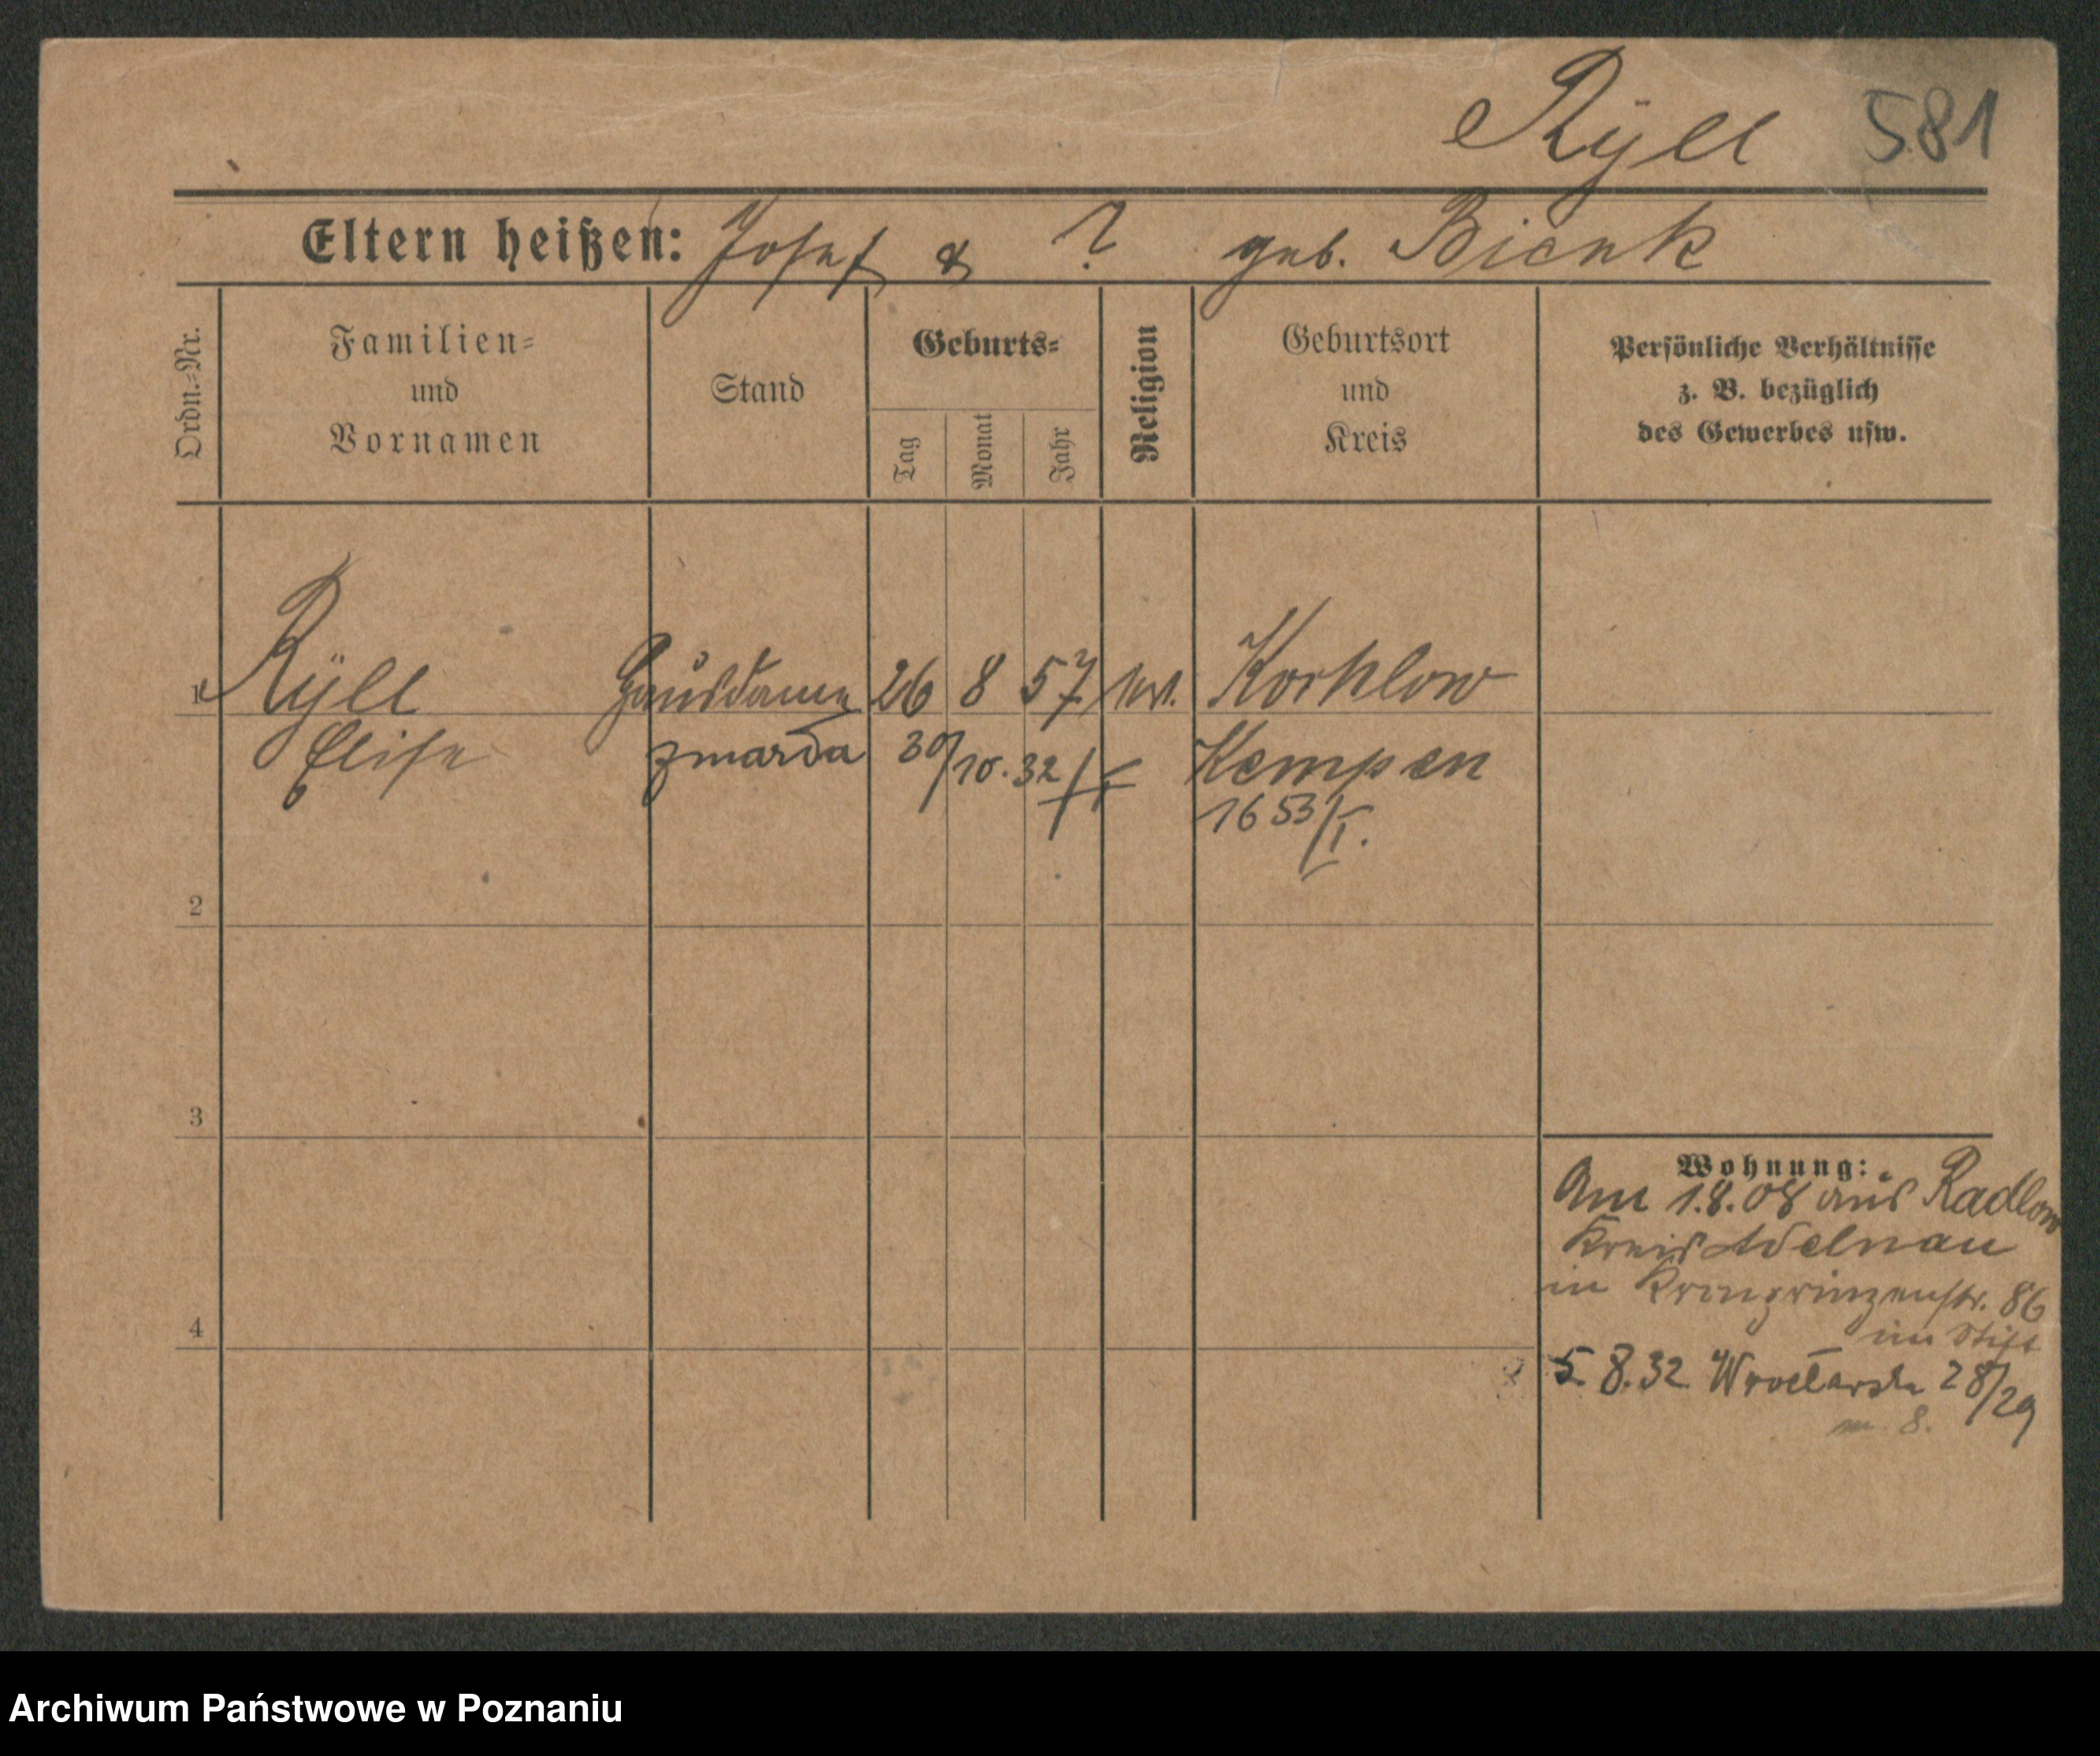 Ryll 581
Eltern heißen: Josef & ? geb. Bienk
Ordn.-Nr.
Familien-
und
Vornamen
Stand
Geburts-
Tag
Monat
Jahr
Religion
Geburtsort
und
Kreis
Persönliche Verhältnisse
z. B. bezüglich
des Gewerbes usw.
1 Ryll Hausdame 26 8 57
Elise zmarda 30/10.32 Kempen
1653/I.
2
3
4
Wohnung:
Am 1.8.08 aus Radlow
Kreis Adelnau
in Kronprinzenstr. 86
im Stift
5.8.32 Wrocławska 28/29
m. 8.
Archiwum Państwowe w Poznaniu